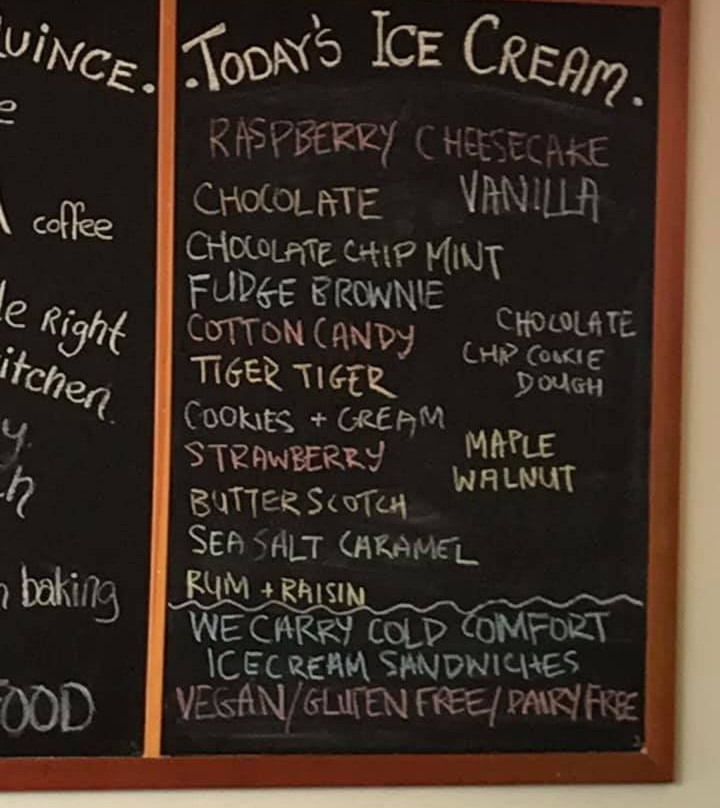 UINCE.
e
coffee
le Right
itchen.
y.
h
n baking
FOOD
.TODAY'S ICE CREAM.
RASPBERRY CHEESECAKE
CHOCOLATE VANILLA
CHOCOLATE CHIP MINT
FUDGE BROWNIE
COTTON CANDY
CHOCOLATE
CHIP COOKIE
DOUGH
TIGER TIGER
COOKIES + CREAM
STRAWBERRY
MAPLE
WALNUT
BUTTERSCOTCH
SEA SALT CARAMEL
RUM + RAISIN
WE CARRY COLD COMFORT
ICECREAM SANDWICHES
VEGAN/GLUTEN FREE/DAIRY FREE